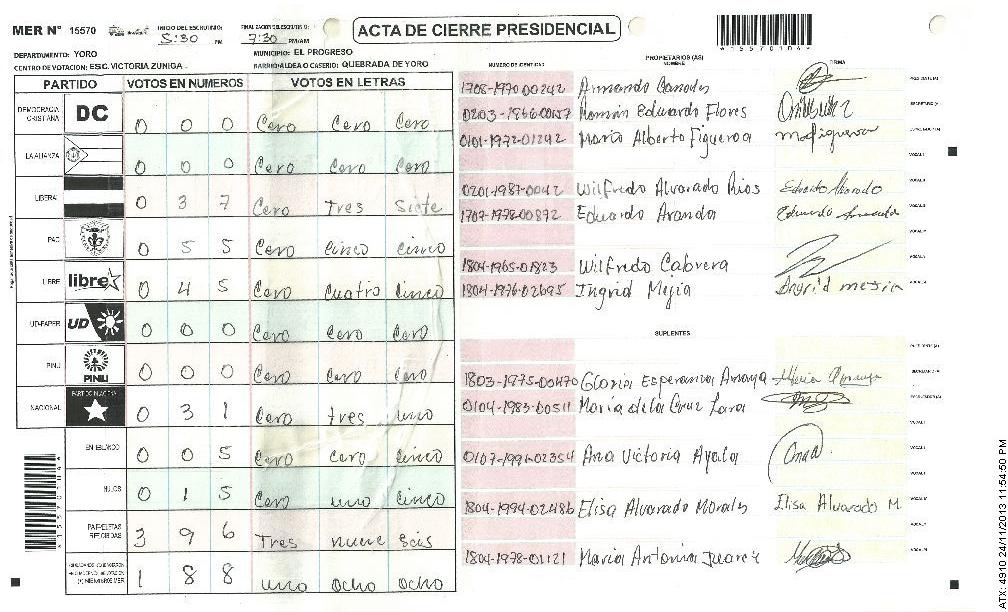 MER Nº 15570
INICIO DEL ESCRUTINIO:
5:30 PM
FINALIZACION DEL ESCRUTINIO:
7:30 PM/AM
ACTA DE CIERRE PRESIDENCIAL
DEPARTUMENTO: YORO
MUNICIPIO: EL PROGRESO
CENTRO DE VOTACION: ESC. VICTORIA ZUNIGA
BARRIO/ALDEA O CASERIO: QUEBRADA DE YORO
PARTIDO VOTOS EN NUMEROS VOTOS EN LETRAS
DEMOCRACIA CRISTIANA DC 0 0 0 Cero Cero Cero
LA ALIANZA 0 0 0 Cero Cero Cero
LIBERAL 0 3 7 Cero Tres Siete
PAC 0 5 5 Cero Cinco Cinco
LIBRE libre 0 4 5 Cero Cuatro Cinco
UD-FAPER UD 0 0 0 Cero Cero Cero
PINU PINU 0 0 0 Cero Cero Cero
NACIONAL PARTIDO NACIONAL 0 3 1 Cero tres uno
EN BLANCO 0 0 5 Cero Cero Cinco
NULOS 0 1 5 Cero uno Cinco
PAPELETAS RECIBIDAS 3 9 6 Tres nueve Seis
1 8 8 uno ocho ocho
NUMERO DE IDENTIDAD PROPIETARIOS (AS) NOMBRE FIRMA
1708-1970-00242 Armando
0203-1966-00157 Ramón Eduardo Flores
0101-1972-01242 Mario Alberto Figueroa
0201-1987-0042 Wilfredo Alvarado Rios Eduardo Alvarado
1707-1978-00872 Eduardo Aranda Eduardo Aranda
1804-1965-01823 Wilfredo Cabrera
1804-1976-02695 Ingrid Mejia Ingrid mejia
SUPLENTES
1803-1975-00470 Gloria Esperanza Amaya
0104-1983-00511 Maria de la Cruz Lara
0107-1991-02354 Ana Victoria Ayala
1804-1994-02486 Elisa Alvarado Morales Elisa Alvarado M.
1804-1978-01121 Maria Antonia Juarez
ATX: 4910 24/11/2013 11:54:50 PM